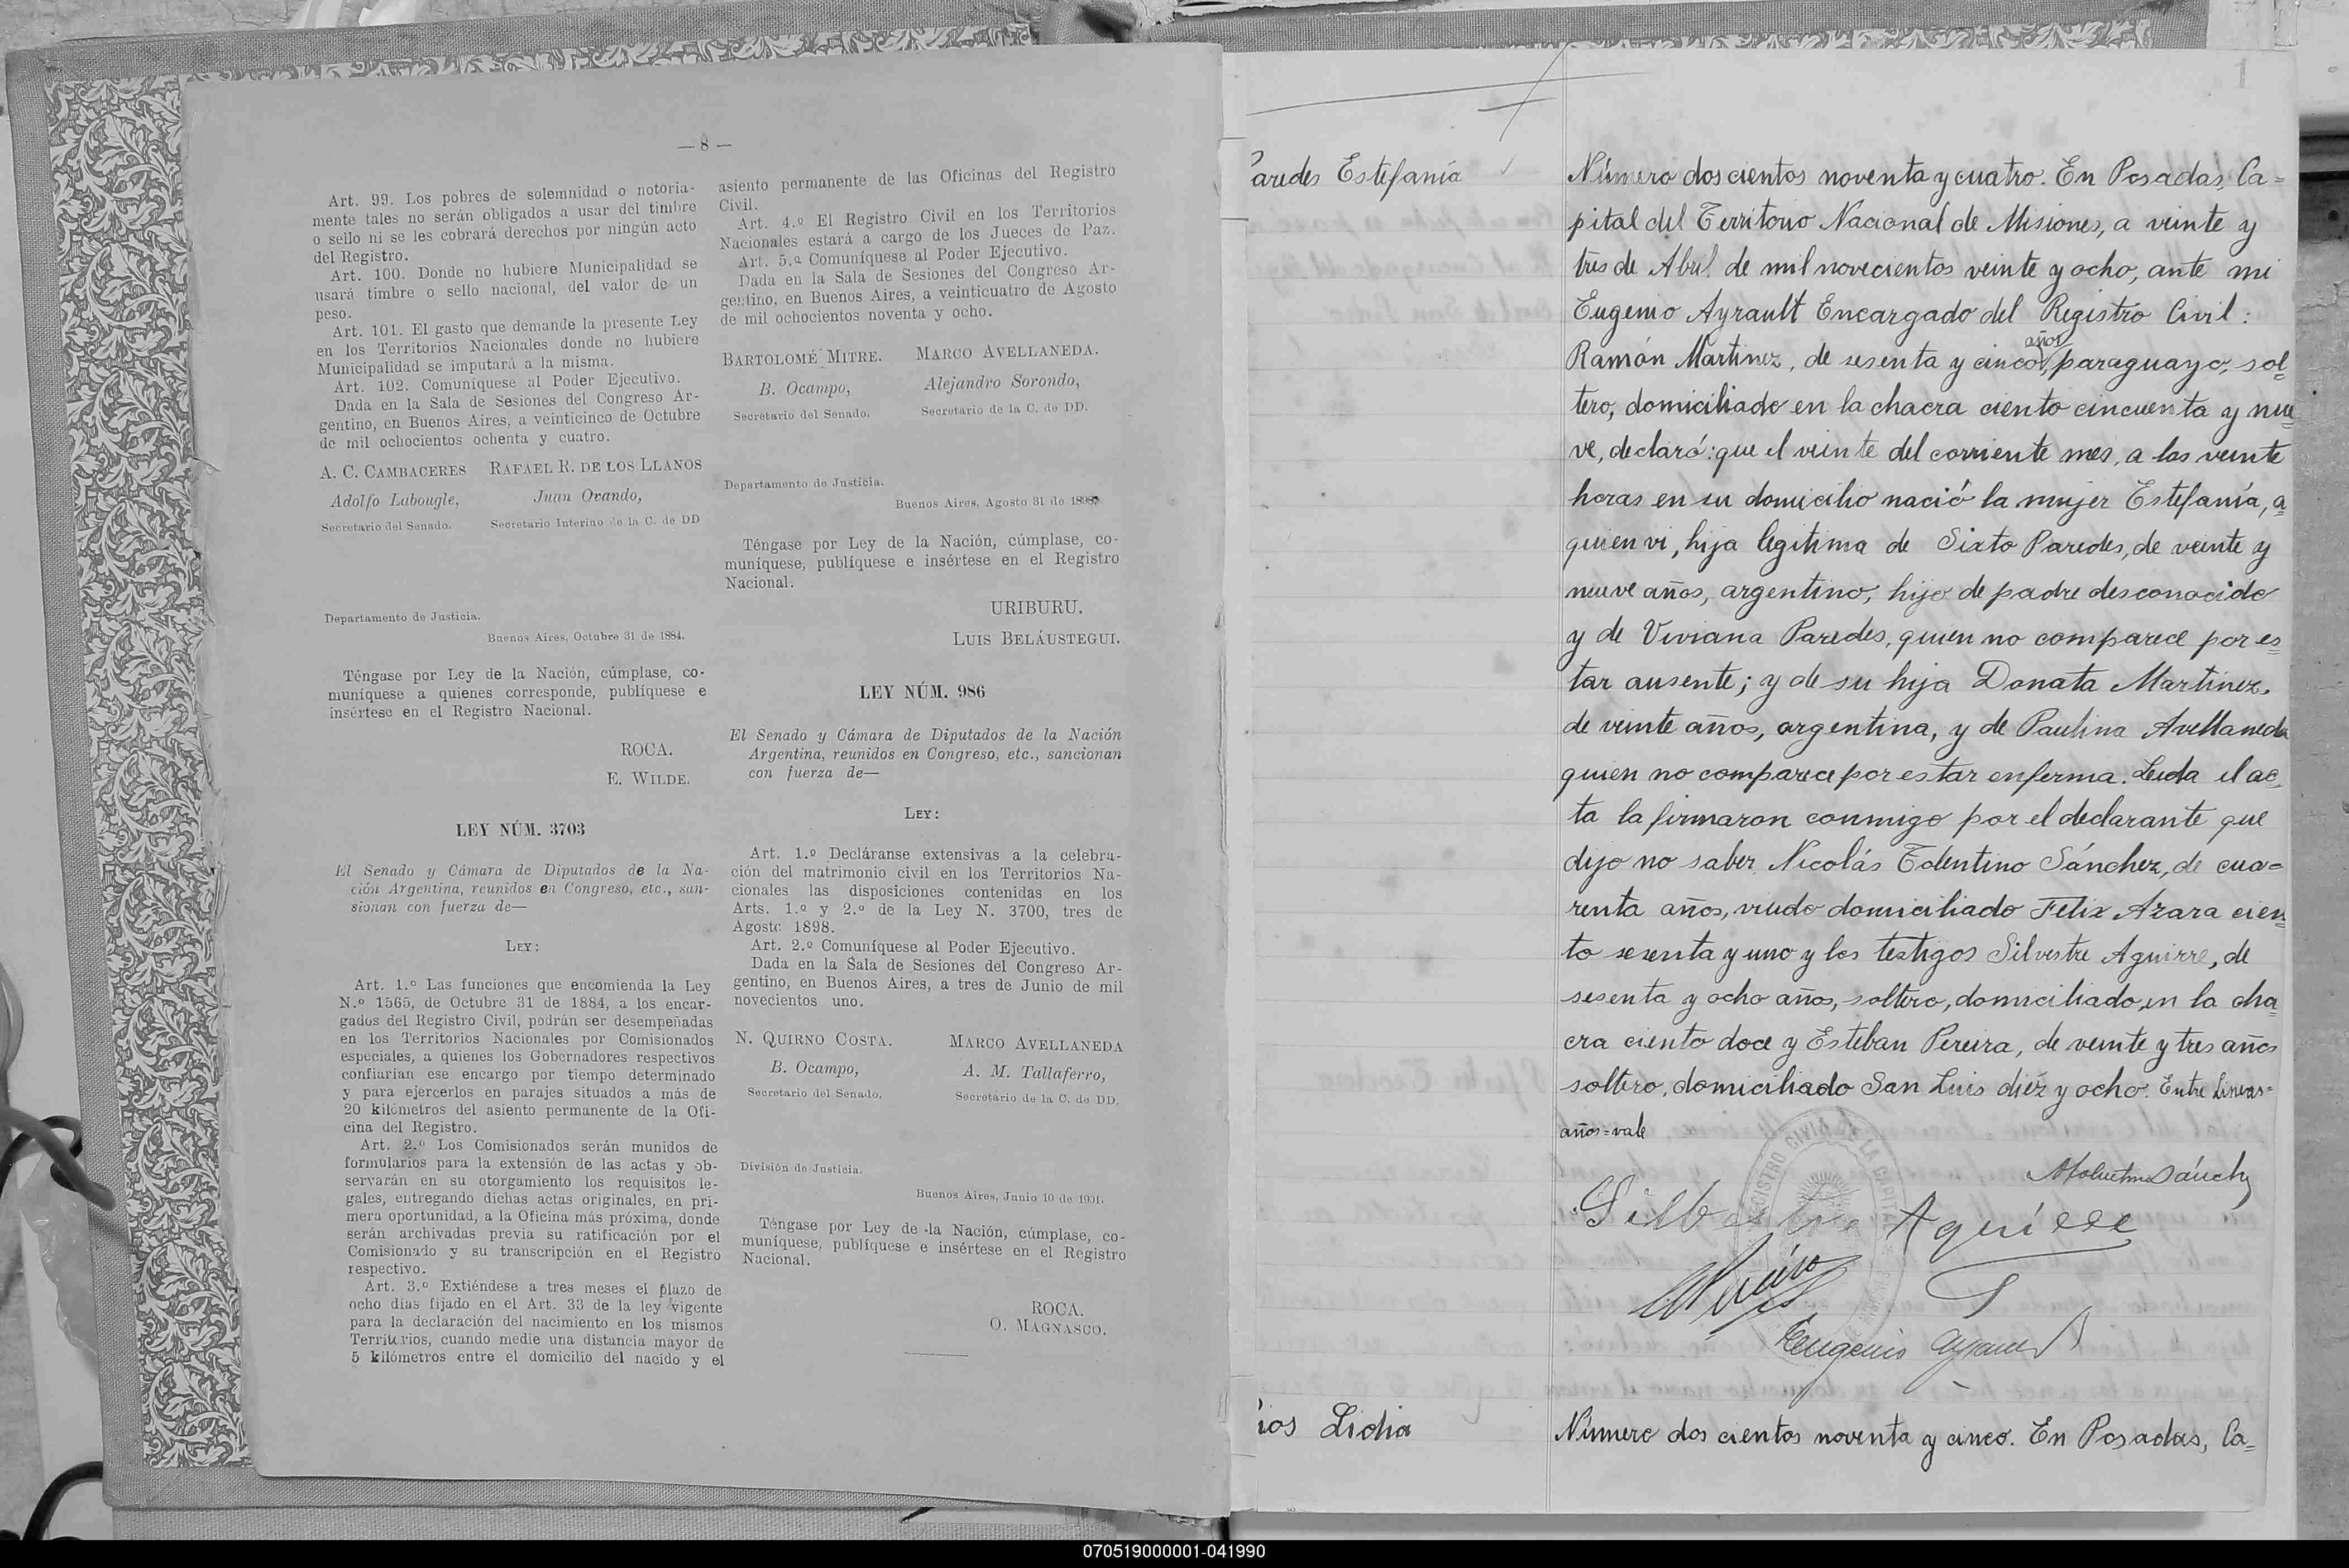 — 8 —
Art. 99. Los pobres de solemnidad o notoria-
mente tales no serán obligados a usar del timbre
o sello ni se les cobrará derechos por ningún acto
del Registro.
Art. 100. Donde no hubiere Municipalidad se
usará timbre o sello nacional, del valor de un
peso.
Art. 101. El gasto que demande la presente Ley
en los Territorios Nacionales donde no hubiere
Municipalidad se imputará a la misma.
Art. 102. Comuníquese al Poder Ejecutivo.
Dada en la Sala de Sesiones del Congreso Ar-
gentino, en Buenos Aires, a veinticinco de Octubre
de mil ochocientos ochenta y cuatro.
A. C. CAMBACERES RAFAEL R. DE LOS LLANOS
Adolfo Labougle, Juan Ovando,
Secretario del Senado. Secretario Interino de la C. de DD
Departamento de Justicia.
Buenos Aires, Octubre 31 de 1884.
Téngase por Ley de la Nación, cúmplase, co-
muníquese a quienes corresponde, publíquese e
insértese en el Registro Nacional.
ROCA.
E. WILDE.
LEY NÚM. 3703
El Senado y Cámara de Diputados de la Na-
ción Argentina, reunidos en Congreso, etc., san-
sionan con fuerza de—
LEY:
Art. 1.º Las funciones que encomienda la Ley
N.º 1565, de Octubre 31 de 1884, a los encar-
gados del Registro Civil, podrán ser desempeñadas
en los Territorios Nacionales por Comisionados
especiales, a quienes los Gobernadores respectivos
confiarían ese encargo por tiempo determinado
y para ejercerlos en parajes situados a más de
20 kilómetros del asiento permanente de la Ofi-
cina del Registro.
Art. 2.º Los Comisionados serán munidos de
formularios para la extensión de las actas y ob-
servarán en su otorgamiento los requisitos le-
gales, entregando dichas actas originales, en pri-
mera oportunidad, a la Oficina más próxima, donde
serán archivadas previa su ratificación por el
Comisionado y su transcripción en el Registro
respectivo.
Art. 3.º Extiéndese a tres meses el plazo de
ocho días fijado en el Art. 33 de la ley vigente
para la declaración del nacimiento en los mismos
Territorios, cuando medie una distancia mayor de
5 kilómetros entre el domicilio del nacido y el
asiento permanente de las Oficinas del Registro
Civil.
Art. 4.º El Registro Civil en los Territorios
Nacionales estará a cargo de los Jueces de Paz.
Art. 5.º Comuníquese al Poder Ejecutivo.
Dada en la Sala de Sesiones del Congreso Ar-
gentino, en Buenos Aires, a veinticuatro de Agosto
de mil ochocientos noventa y ocho.
BARTOLOMÉ MITRE. MARCO AVELLANEDA.
B. Ocampo, Alejandro Sorondo,
Secretario del Senado. Secretario de la C. de DD.
Departamento de Justicia.
Buenos Aires, Agosto 31 de 1898.
Téngase por Ley de la Nación, cúmplase, co-
muníquese, publíquese e insértese en el Registro
Nacional.
URIBURU.
LUIS BELÁUSTEGUI.
LEY NÚM. 986
El Senado y Cámara de Diputados de la Nación
Argentina, reunidos en Congreso, etc., sancionan
con fuerza de—
LEY:
Art. 1.º Decláranse extensivas a la celebra-
ción del matrimonio civil en los Territorios Na-
cionales las disposiciones contenidas en los
Arts. 1.º y 2.º de la Ley N. 3700, tres de
Agosto 1898.
Art. 2.º Comuníquese al Poder Ejecutivo.
Dada en la Sala de Sesiones del Congreso Ar-
gentino, en Buenos Aires, a tres de Junio de mil
novecientos uno.
N. QUIRNO COSTA. MARCO AVELLANEDA
B. Ocampo, A. M. Tallaferro,
Secretario del Senado. Secretário de la C. de DD.
División de Justicia.
Buenos Aires, Junio 10 de 1901.
Téngase por Ley de la Nación, cúmplase, co-
muníquese, publíquese e insértese en el Registro
Nacional.
ROCA.
O. MAGNASCO.
1
aredes Estefanía
Número doscientos noventa y cuatro. En Posadas, Ca=
pital del Territorio Nacional de Misiones, a veinte y
tres de Abril de mil novecientos veinte y ocho, ante mi
Eugenio Ayrault Encargado del Registro Civil:
años
Ramón Martinez, de sesenta y cinco, paraguayo, sol=
tero, domiciliado en la chacra ciento cincuenta y nue=
ve, declaró: que el veinte del corriente mes, a las veinte
horas en su domicilio nació la mujer Estefanía, a
quien vi, hija legitima de Sixto Paredes, de veinte y
nueve años, argentino, hijo de padre desconocido
y de Viviana Paredes, quien no comparece por es=
tar ausente; y de su hija Donata Martinez,
de veinte años, argentina, y de Paulina Avellaneda
quien no comparece por estar enferma. Leida el ac=
ta la firmaron conmigo por el declarante que
dijo no saber, Nicolás Tolentino Sánchez, de cua=
renta años, viudo domiciliado Felix Azara cien=
to sesenta y uno y los testigos Silvestre Aguirre, de
sesenta y ocho años, soltero, domiciliado, en la cha=
cra ciento doce y Esteban Pereira, de veinte y tres años
soltero, domiciliado San Luis diéz y ocho. Entre lineas=
años=vale
REGISTRO CIVIL DE LA CAPITAL
Silbestre Aguirre
Eugenio Ayrault
ios Lidia
Número dos cientos noventa y cinco. En Posadas, Ca=
070519000001-041990